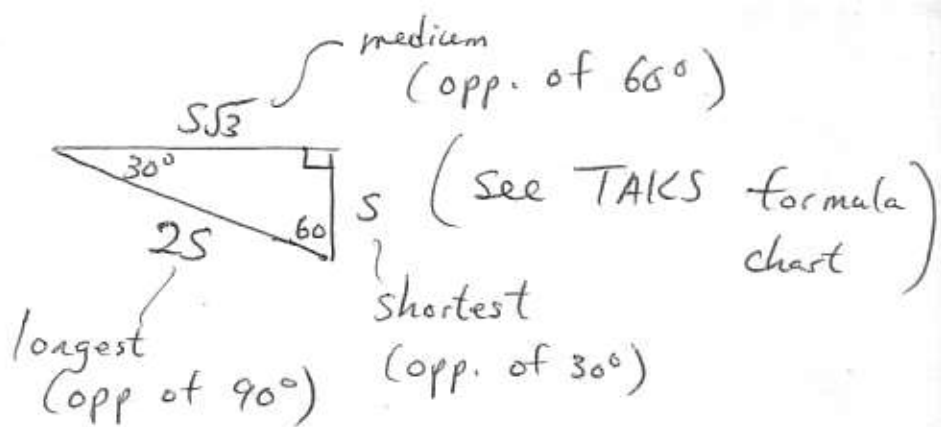 medium
(opp. of 60°)
S√3
30°
60
S
2S
(see TAKS formula
chart)
shortest
(opp. of 30°)
longest
(opp of 90°)